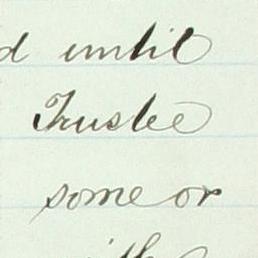 until
Trustee
some or